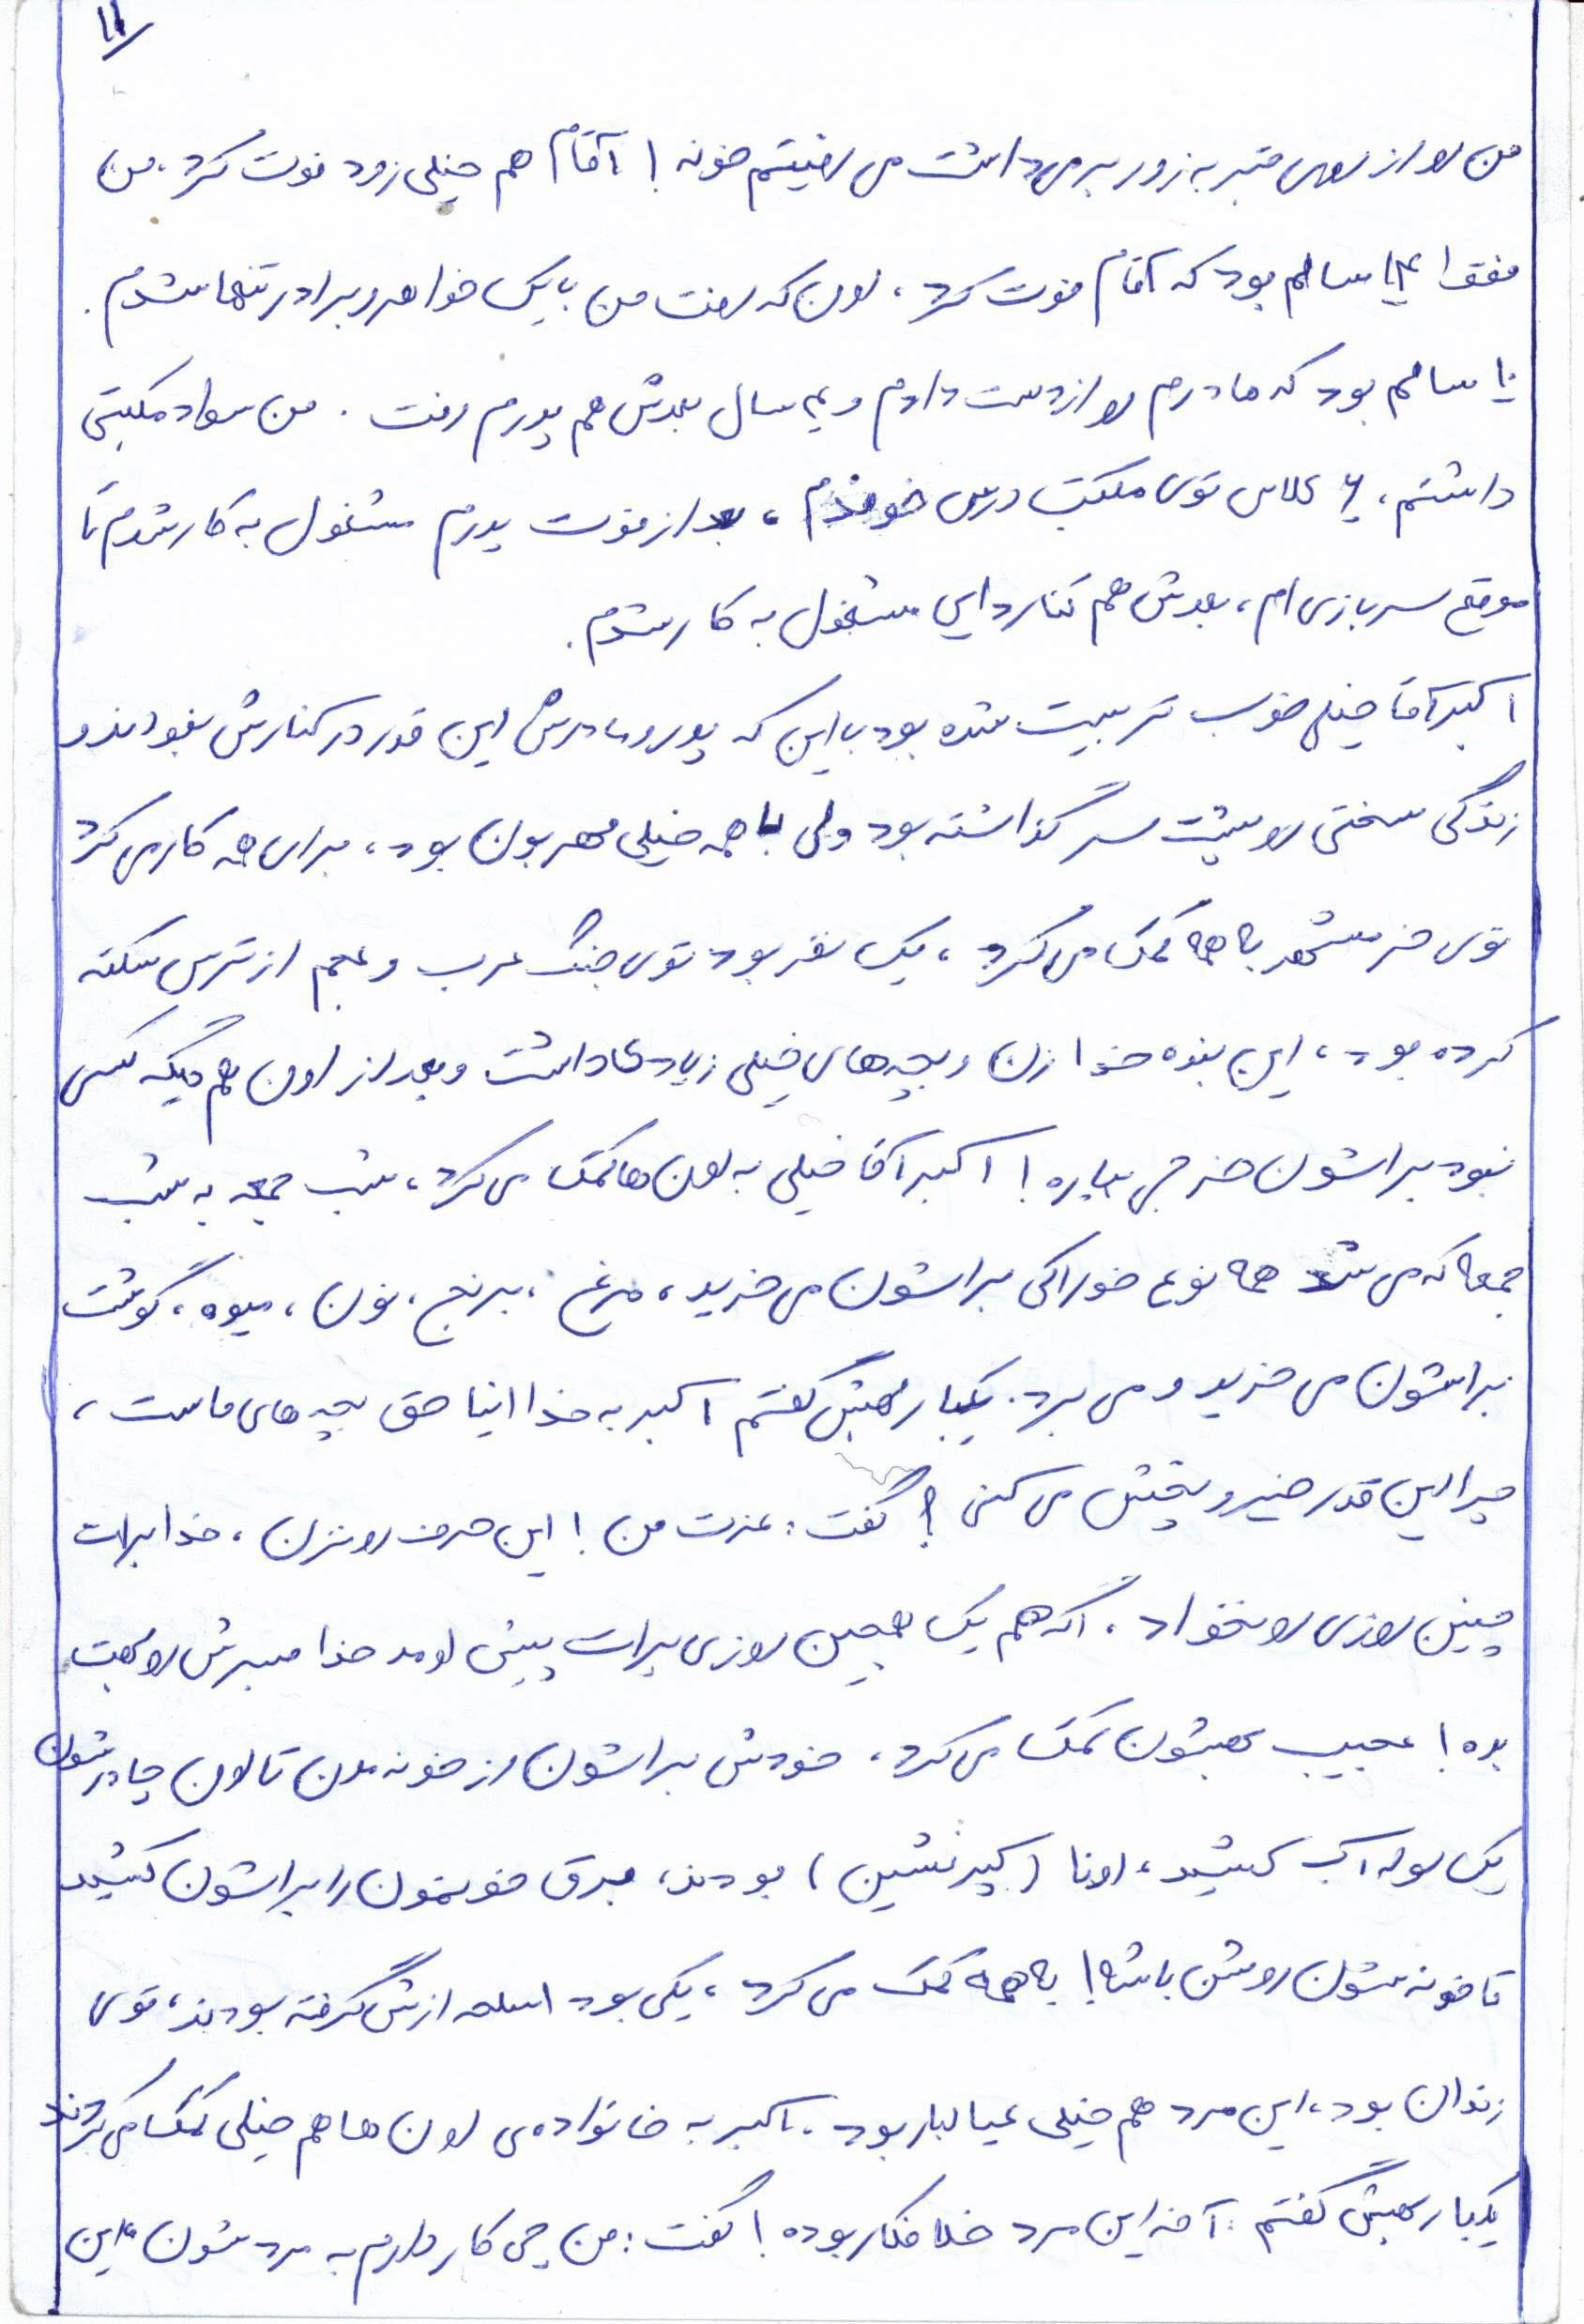 ۱۱
من رو از روی قبر به زور برمی داشت می رفیتم خونه ! آقام هم خیلی زود فوت کرد، من
فقط ۱۴ سالم بود که آقام فوت کرد، اون که رفت من با یک خواهر و برادر تنها شدم.
۱۰ سالم بود که مادرم رو از دست دادم و ۴ سال بعدش هم پدرم رفت. من سواد مکتبی
داشتم، ۶ کلاس توی مکتب درس خوندم، بعد از فوت پدرم مشغول به کار شدم تا
موقع سربازی ام، بعدش هم کنار دایی مشغول به کار شدم.
اکبرآقا خیلی خوب تربیت شده بود با این که پدر و مادرش این قدر در کنارش نبودند و
زندگی سختی رو پشت سر گذاشته بود ولی با همه خیلی مهربون بود، برای همه کار می کرد
توی خرمشهر به همه کمک می کرد، یک نفر بود توی جنگ عرب و عجم از ترس سکته
کرده بود، این بنده خدا زن و بچه های خیلی زیادی داشت و بعد از اون هم دیگه کسی
نبود براشون خرجی بیاره ! اکبرآقا خیلی به اون ها کمک می کرد، شب جمعه به شب
جمعه که می شد همه نوع خوراکی براشون می خرید، مرغ ، برنج ، نون ، میوه ، گوشت
براشون می خرید و می برد. یکبار بهش گفتم اکبر به خدا اینا حق بچه های ماست ،
چرا این قدر خیر و پخش می کنی ؟ گفت : عزت من ! این حرف رو نزن ، خدا برات
چنین روزی رو نخواد . اگه هم یک همچین روزی برات پیش اومد خدا صبرش رو بهت
بده ! عجیب بهشون کمک می کرد، خودش براشون از خونه مون تا اون چادرشون
یک لوله آب کشید ، اونا (کپرنشین) بودند، برق خونمون را براشون کشید
تا خونه شون روشن باشه ! به همه کمک می کرد ، یکی بود اسلحه ازش گرفته بودند، توی
زندان بود ، این مرد هم خیلی عیالبار بود . اکبر به خانواده ی اون ها هم خیلی کمک می کردند
یکبار بهش گفتم : آخه این مرد خلافکار بوده ! گفت : من چی کار دارم به مردشون ، این